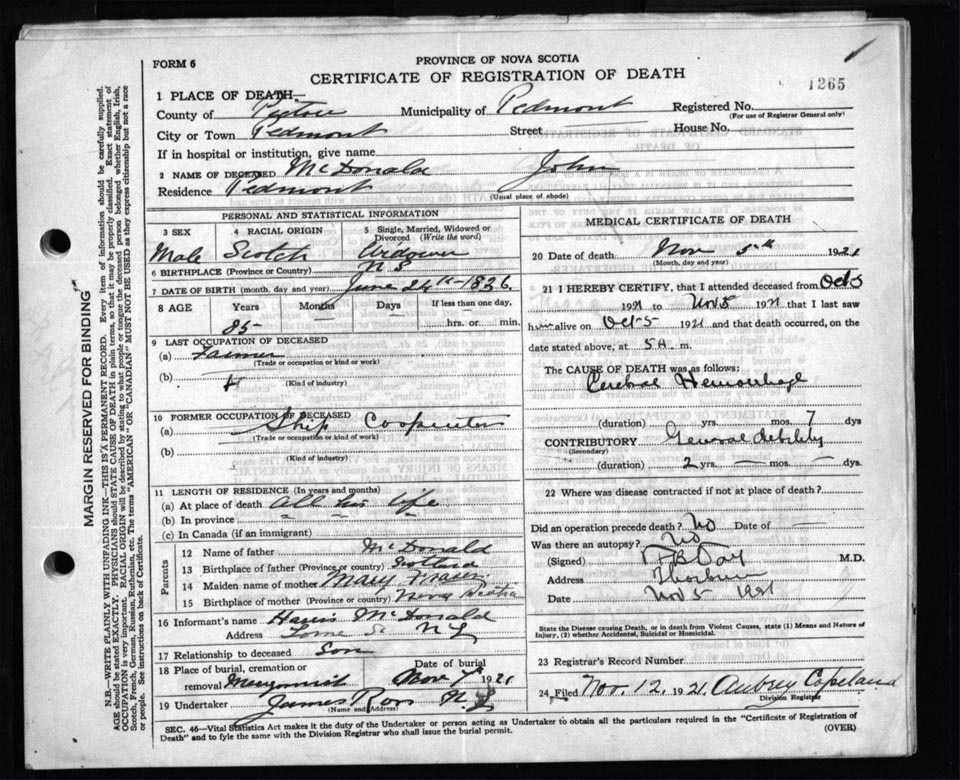 FORM 6
PROVINCE OF NOVA SCOTIA
CERTIFICATE OF REGISTRATION OF DEATH
1265
1 PLACE OF DEATH—
County of Pictou Municipality of Pedmont Registered No.
(For use of Registrar General only)
City or Town Pedmont Street House No.
If in hospital or institution, give name
2 NAME OF DECEASED McDonald John
Residence Pedmont
(Usual place of abode)
PERSONAL AND STATISTICAL INFORMATION
3 SEX 4 RACIAL ORIGIN 5 Single, Married, Widowed or Divorced (Write the word)
Male Scotch Widower
6 BIRTHPLACE (Province or Country) N S
7 DATE OF BIRTH (month, day and year) June 24th 1836
8 AGE Years Months Days If less than one day,
85 hrs. or min.
9 LAST OCCUPATION OF DECEASED
(a) Farmer
(Trade or occupation or kind or work)
(b)
(Kind of industry)
10 FORMER OCCUPATION OF DECEASED
(a) Ship Carpenter
(Trade or occupation or kind of work)
(b)
(Kind of industry)
11 LENGTH OF RESIDENCE (In years and months)
(a) At place of death all his life
(b) In province
(c) In Canada (if an immigrant)
Parents
12 Name of father McDonald
13 Birthplace of father (Province or country) Scotland
14 Maiden name of mother Mary Fraser
15 Birthplace of mother (Province or country) Nova Scotia
16 Informant's name McDonald
Address Lorne St
17 Relationship to deceased Son
18 Place of burial, cremation or removal Date of burial
Nov 7th 1921
19 Undertaker James Ross
(Name and Address)
MEDICAL CERTIFICATE OF DEATH
20 Date of death Nov 5th 1921
(Month, day and year)
21 I HEREBY CERTIFY, that I attended deceased from Oct 5
1921 to Nov 5 1921 that I last saw
him alive on Oct 5 1921 and that death occurred, on
date stated above, at 5 A. m.
The CAUSE OF DEATH was as follows:
Cerebral Hemorrhage
(duration) yrs. mos. 7 dys
CONTRIBUTORY General debility
(Secondary)
(duration) 2 yrs. — mos. — dys.
22 Where was disease contracted if not at place of death?
Did an operation precede death? No Date of —
Was there an autopsy? No
(Signed) Day M.D.
Address Thorburn
Date Nov 5 1921
State the Disease causing Death, or in death from Violent Causes, state (1) Means and Nature of
Injury, (2) whether Accidental, Suicidal or Homicidal.
23 Registrar's Record Number
24 Filed Nov. 12, 1921 Aubrey Copeland
Division Registrar
SEC. 46—Vital Statistics Act makes it the duty of the Undertaker or person acting as Undertaker to obtain all the particulars required in the "Certificate of Registration of
Death" and to fyle the same with the Division Registrar who shall issue the burial permit.
(OVER)
MARGIN RESERVED FOR BINDING
N.B.—WRITE PLAINLY WITH UNFADING INK—THIS IS A PERMANENT RECORD. Every item of information should be carefully supplied.
AGE should be stated EXACTLY. PHYSICIANS should STATE CAUSE OF DEATH in plain terms, so that it may be properly classified. Exact statement of
OCCUPATION is very important. RACIAL ORIGIN will be described by stating to what people or tongue the deceased person belonged whether English, Irish,
Scotch, French, German, Russian, Ruthenian, etc. The terms "AMERICAN" OR "CANADIAN" MUST NOT BE USED as they express citizenship but not a race
or people. See instructions on back of Certificate.